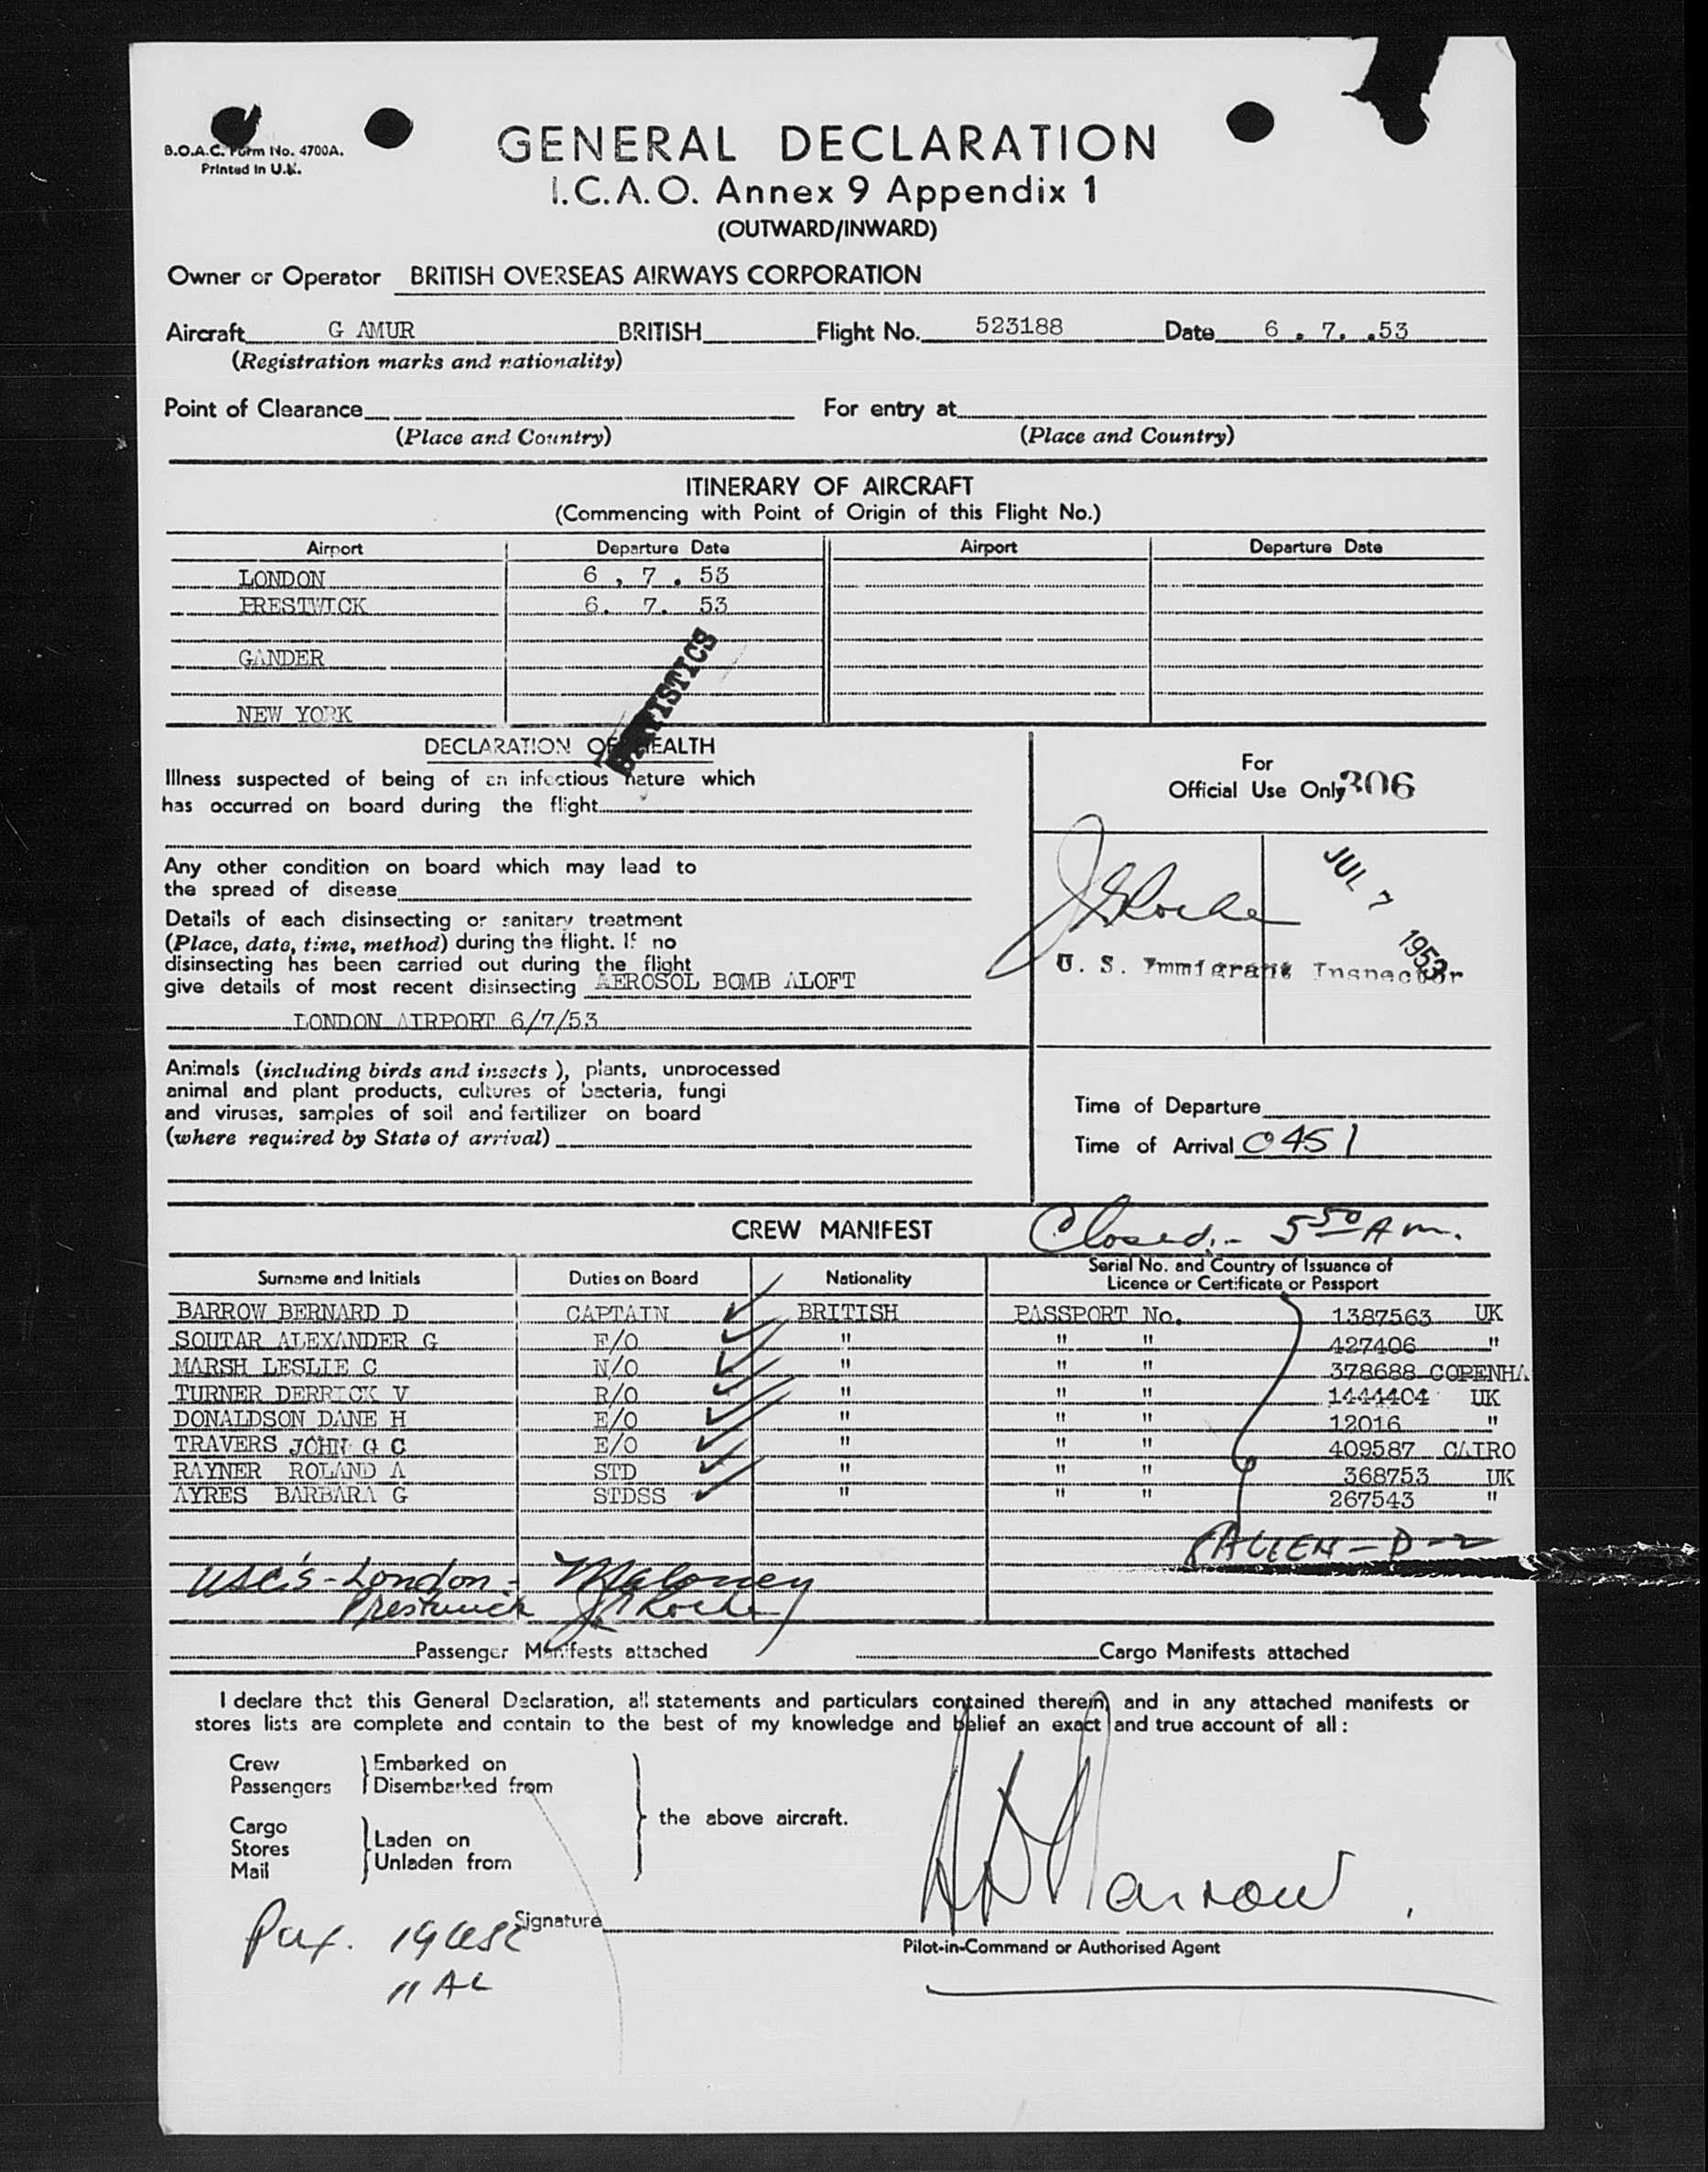 B.O.A.C. Form No. 4700A.
Printed in U.K.
GENERAL DECLARATION
I.C.A.O. Annex 9 Appendix 1
(OUTWARD/INWARD)
Owner or Operator BRITISH OVERSEAS AIRWAYS CORPORATION
Aircraft G AMUR BRITISH Flight No. 523188 Date 6 . 7. .53
(Registration marks and nationality)
Point of Clearance For entry at
(Place and Country) (Place and Country)
ITINERARY OF AIRCRAFT
(Commencing with Point of Origin of this Flight No.)
Airport Departure Date Airport Departure Date
LONDON 6 , 7 . 53
PRESTWICK 6. 7. 53
GANDER
NEW YORK
STATISTICS
DECLARATION OF HEALTH
Illness suspected of being of an infectious nature which
has occurred on board during the flight
Any other condition on board which may lead to
the spread of disease
Details of each disinsecting or sanitary treatment
(Place, date, time, method) during the flight. If no
disinsecting has been carried out during the flight
give details of most recent disinsecting AEROSOL BOMB ALOFT
LONDON AIRPORT 6/7/53
For
Official Use Only 306
J Roche
JUL 7 1953
U. S. Immigrant Inspector
Animals (including birds and insects), plants, unprocessed
animal and plant products, cultures of bacteria, fungi
and viruses, samples of soil and fertilizer on board
(where required by State of arrival)
Time of Departure
Time of Arrival 0451
CREW MANIFEST Closed.- 5 50 A m.
Surname and Initials Duties on Board Nationality Serial No. and Country of Issuance of
Licence or Certificate or Passport
BARROW BERNARD D CAPTAIN BRITISH PASSPORT No. 1387563 UK
SOUTAR ALEXANDER G F/O " " " 427406 "
MARSH LESLIE C N/O " " " 378688 COPENHA
TURNER DERRICK V R/O " " " 1444404 UK
DONALDSON DANE H E/O " " " 12016 "
TRAVERS JOHN G C E/O " " " 409587 CAIRO
RAYNER ROLAND A STD " " " 368753 UK
AYRES BARBARA G STDSS " " " 267543 "
ALIEN - D-2
USC's - London - Maloney
Prestwick J Roche
Passenger Manifests attached Cargo Manifests attached
I declare that this General Declaration, all statements and particulars contained therein, and in any attached manifests or
stores lists are complete and contain to the best of my knowledge and belief an exact and true account of all:
Crew Embarked on
Passengers Disembarked from
the above aircraft.
Cargo
Stores Laden on
Mail Unladen from
Signature Barrow
Pax. 19 USC
11 AL
Pilot-in-Command or Authorised Agent